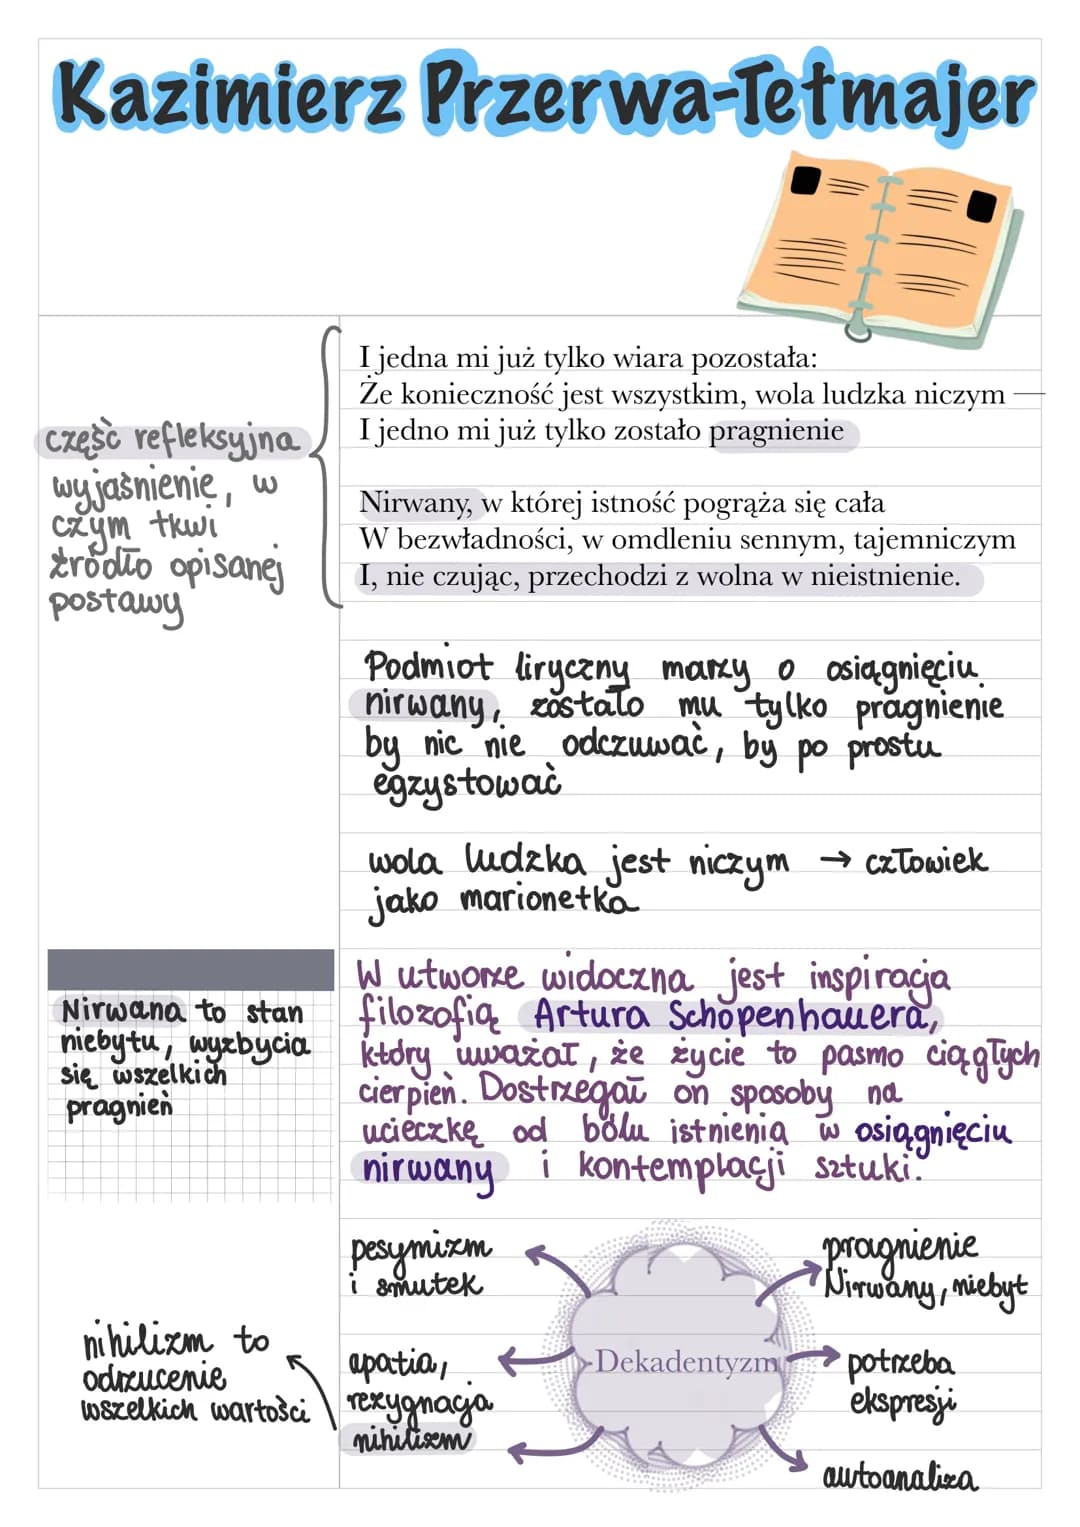 Kazimierz Przerwa-Tetmajer
część refleksyjna
wyjaśnienie, w
czym tkwi
źródło opisanej
postawy
I jedna mi już tylko wiara pozostała:
Że konieczność jest wszystkim, wola ludzka niczym —
I jedno mi już tylko zostało pragnienie
Nirwany, w której istność pogrąża się cała
W bezwładności, w omdleniu sennym, tajemniczym
I, nie czując, przechodzi z wolna w nieistnienie.
Podmiot liryczny marzy o osiągnięciu
nirwany, zostało mu tylko pragnienie
by nic nie odczuwać, by po prostu
egzystować
wola ludzka jest niczym → człowiek
jako marionetka
Nirwana to stan
niebytu, wyzbycia
się wszelkich
pragnień
W utworze widoczna jest inspiracja
filozofią Artura Schopenhauera,
który uważał, że życie to pasmo ciągłych
cierpień. Dostrzegał on sposoby na
ucieczkę od bólu istnienia w osiągnięciu
nirwany i kontemplacji sztuki.
pesymizm
i smutek
apatia,
rezygnacja
nihilizm
nihilizm to
odrzucenie
wszelkich wartości
Dekadentyzm
pragnienie
Nirwany, niebyt
potrzeba
ekspresji
autoanaliza